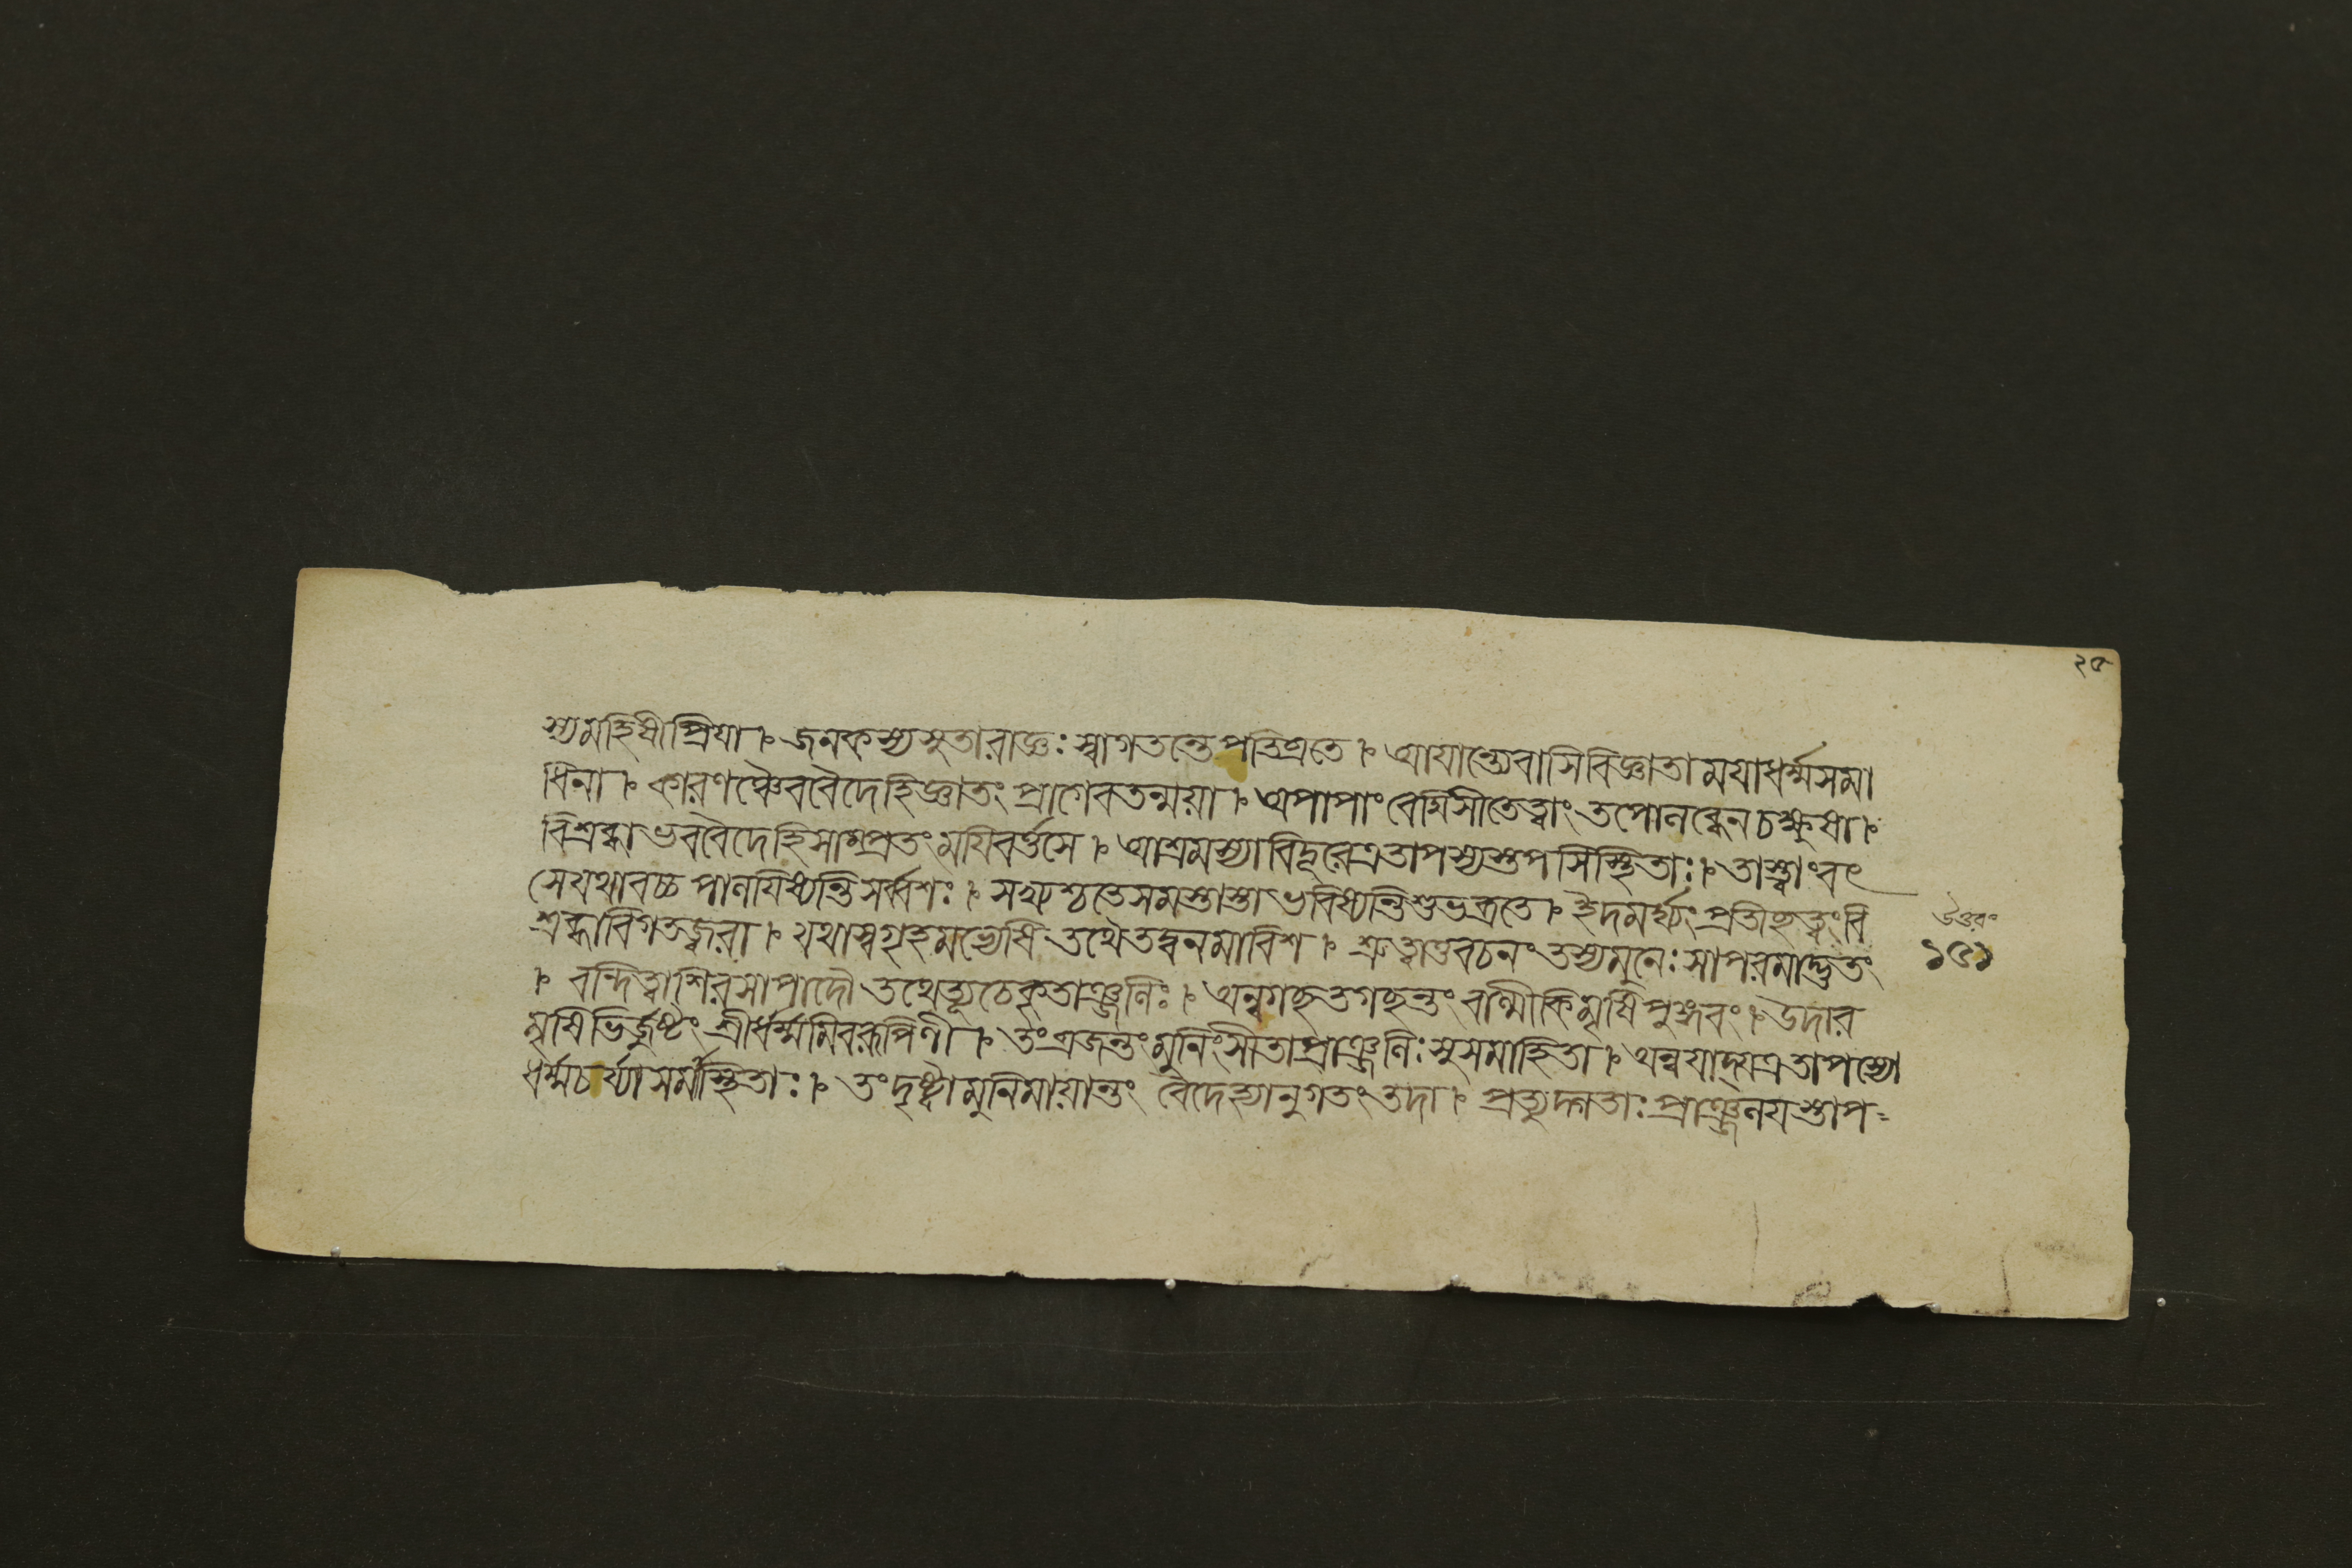 ২৫
স্যমহিষীপ্রিযা । জনকস্যসুতারাজ্ঞঃস্বাগতন্তেপতিব্রতে । আযান্ত্যেবাসিবিজ্ঞাতামযাধর্ম্মসমা
ধিনা । কারণঞ্চৈববৈদেহিজ্ঞাতং প্রাগেবতন্ময়া । অপাপাং বেদ্মিসীতেত্বাং তপোলব্ধেনচক্ষুষা ।
বিশ্রব্ধাভববৈদেহিসাম্প্রতংমযিবর্ত্তসে । আশ্রমস্যাবিদূরেত্রতাপস্যস্তপসিস্থিতাঃ । তাস্ত্বাংবৎ
সেযথাবচ্চ পালযিষ্যন্তিসর্ব্বশঃ । সখ্যশ্চতেসমস্তাস্তাভবিষ্যন্তিশুভব্রতে । ইদমর্ঘ্যংপ্রতীচ্ছত্বংবি
শ্রব্ধাবিগতজ্বরা । যথাস্বগৃহমভ্যেষি তথৈতদ্বনমাবিশ । শ্রুত্বাতুবচনং তস্যমুনেঃসাপরমাদ্ভুতং
। বন্দিত্বাশিরসাপাদৌ তথেত্যূচেকৃতাঞ্জলিঃ । অন্বগচ্ছতগচ্ছন্তং বাল্মীকিমৃষিপুঙ্গবং । উদার
মৃষিভির্জুষ্টং শ্রীর্ধর্ম্মমিবরূপিণী । তংব্রজন্তংমুনিংসীতাপ্রাঞ্জলিঃসুসমাহিতা । অন্বযাদ্যত্রতাপস্যো
ধর্ম্মচর্য্যাসমাস্থিতাঃ । তংদৃষ্ট্বামুনিমায়ান্তং বৈদেহ্যানুগতংতদা । প্রত্যুদ্গতাঃপ্রাঞ্জলযস্তাপ
উত্তরং
১৫১